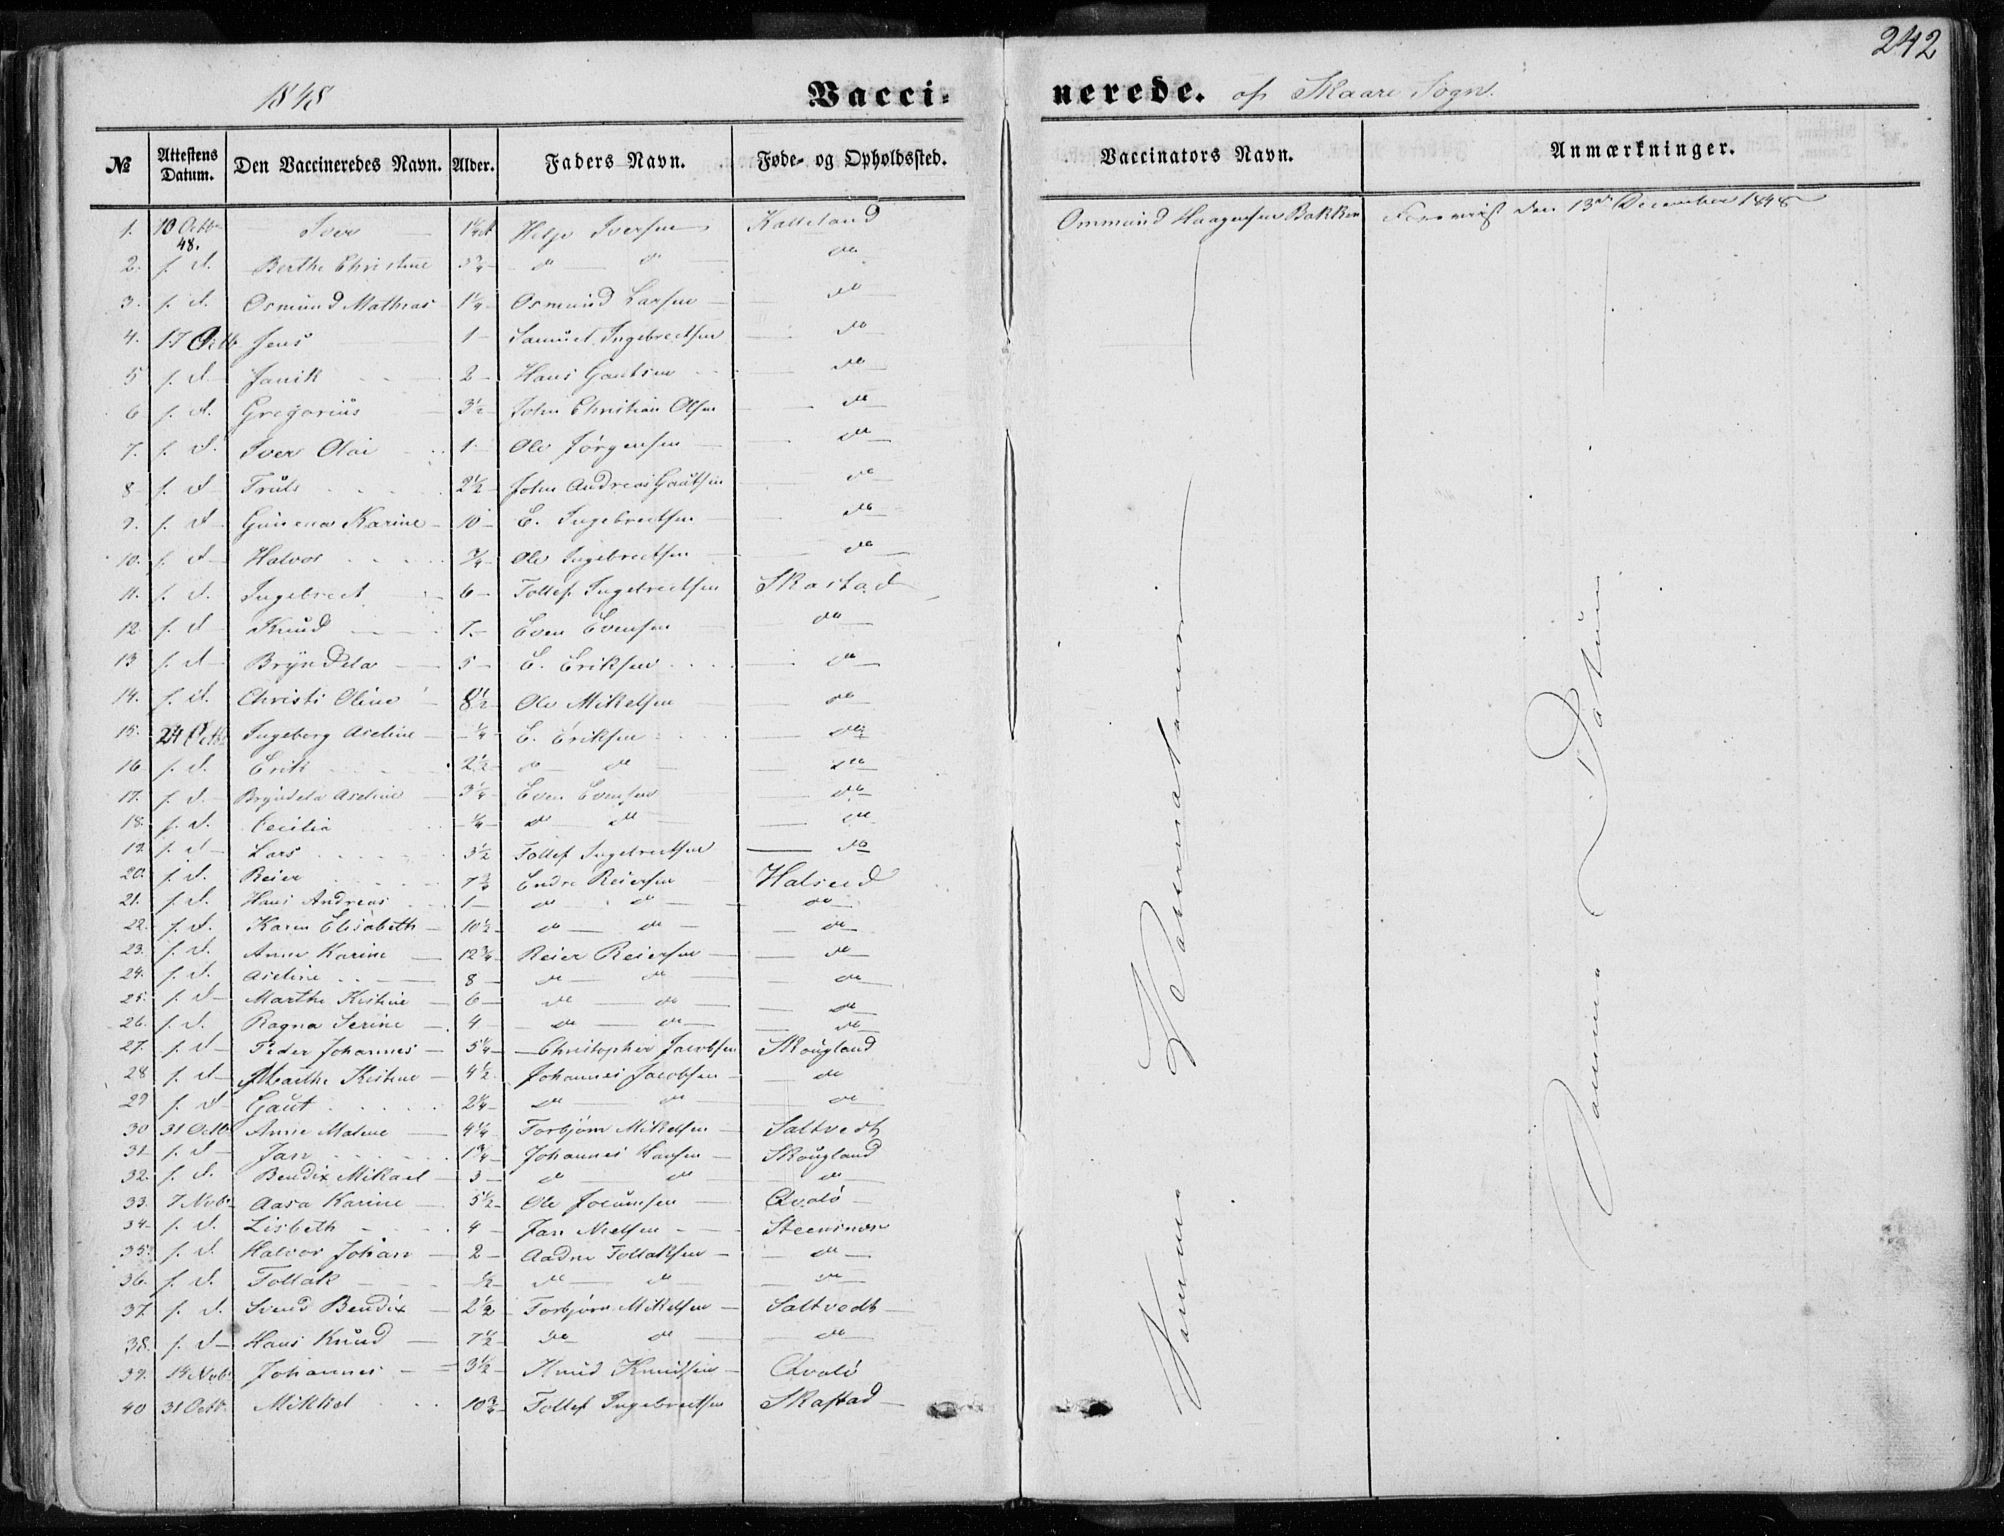 242
1848 Vacci- nerede. af Skaare Sogn.
№ Attestens Datum. Den Vaccineredes Navn. Alder. Faders Navn. Føde- og Opholdssted. Vaccinators Navn. Anmærkninger.
1. 10 Octb. 48. Iver 1¼ Helje Iversen Kalleland Ommund Haagensen Bakken Foreviist den 13de December 1848
2. s. d. Berthe Christine 3¾ do do do
3. s. d. Osmund Mathias 1¼ Osmund Larsen do
4. 17 Octb Jens 1 Samuel Ingebrectsen do
5 s. d. Janik 2 Hans Gautsen do
6 s. d. Gregorius 3½ John Christian Olsen do
7. s. d. Iver Olai 1 Ole Jørgensen do
8 s. d. Truls 2½ John Andreas Gautsen do
9. s. d. Gunena Karine 10 E. Ingebrectsen do
10. s. d. Halvor ¾ Ole Ingebrectsen do
11. s. d. Ingebrect 6 Tollef Ingebrectsen Skastad
12. s. d. Knud 7 Even Evensen do
13 s. d. Bryndela 5 E. Eriksen do
14. s. d. Christi Oline 8½ Ole Mikelsen do
15. 24 Octb Ingeborg Aseline ¼ E. Eriksen do
16 s. d. Erik 2½ do do do
17. s. d. Bryndela Aseline 3¼ Even Evensen do
18. s. d. Cecilia ¼ do do do
19. s. d. Lars 3½ Tollef Ingebrectsen do
20. s. d. Reier 7¾ Endre Reiersen Halseid
21. s. d. Hans Andreas 1 do do do
22. s. d. Karen Elisabeth 10½ do do do
23. s. d. Anne Karine 12¾ Reier Reiersen do
24. s. d. Aseline 8 do do do
25. s. d. Marthe Kistine 6 do do do
26. s. d. Ragna Serine 4 do do do
27. s. d. Peder Johannes 5¼ Christopher Jacobsen Skougland
28 s. d. Marthe Kistine 4½ Johannes Jacobsen do
29 s. d. Gaut 2¼ do do do
30 31 Octb Anne Malene 4¼ Torbjørn Mikelsen Saltvedt
31 s. d. Jan 1¾ Johannes Larsen Skougland
32. s. d. Bendix Mikael 3 do do do
33. 7 Novb. Aasa Karine 5½ Ole Joeumsen Qvalø
34. s. d. Lisbeth 4 Jan Nielsen Steensnæs
35. s. d. Halvor Johan 2 Aadne Tollaksen do
36. s. d. Tollak ½ do do do
37. s. d. Svend Bendix 2½ Torbjørn Mikelsen Saltvedt
38. s. d. Hans Knud 7½ do do do
39. 14 Novb. Johannes 3½ Knud Knudsen Qvalø
40 31 Octb. Mikkel 10¾ Tollef Ingebrectsen Skastad
Samme Vaccinateur
Samme Datum